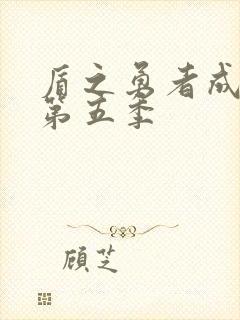 盾之勇者成
第五季
顾芝